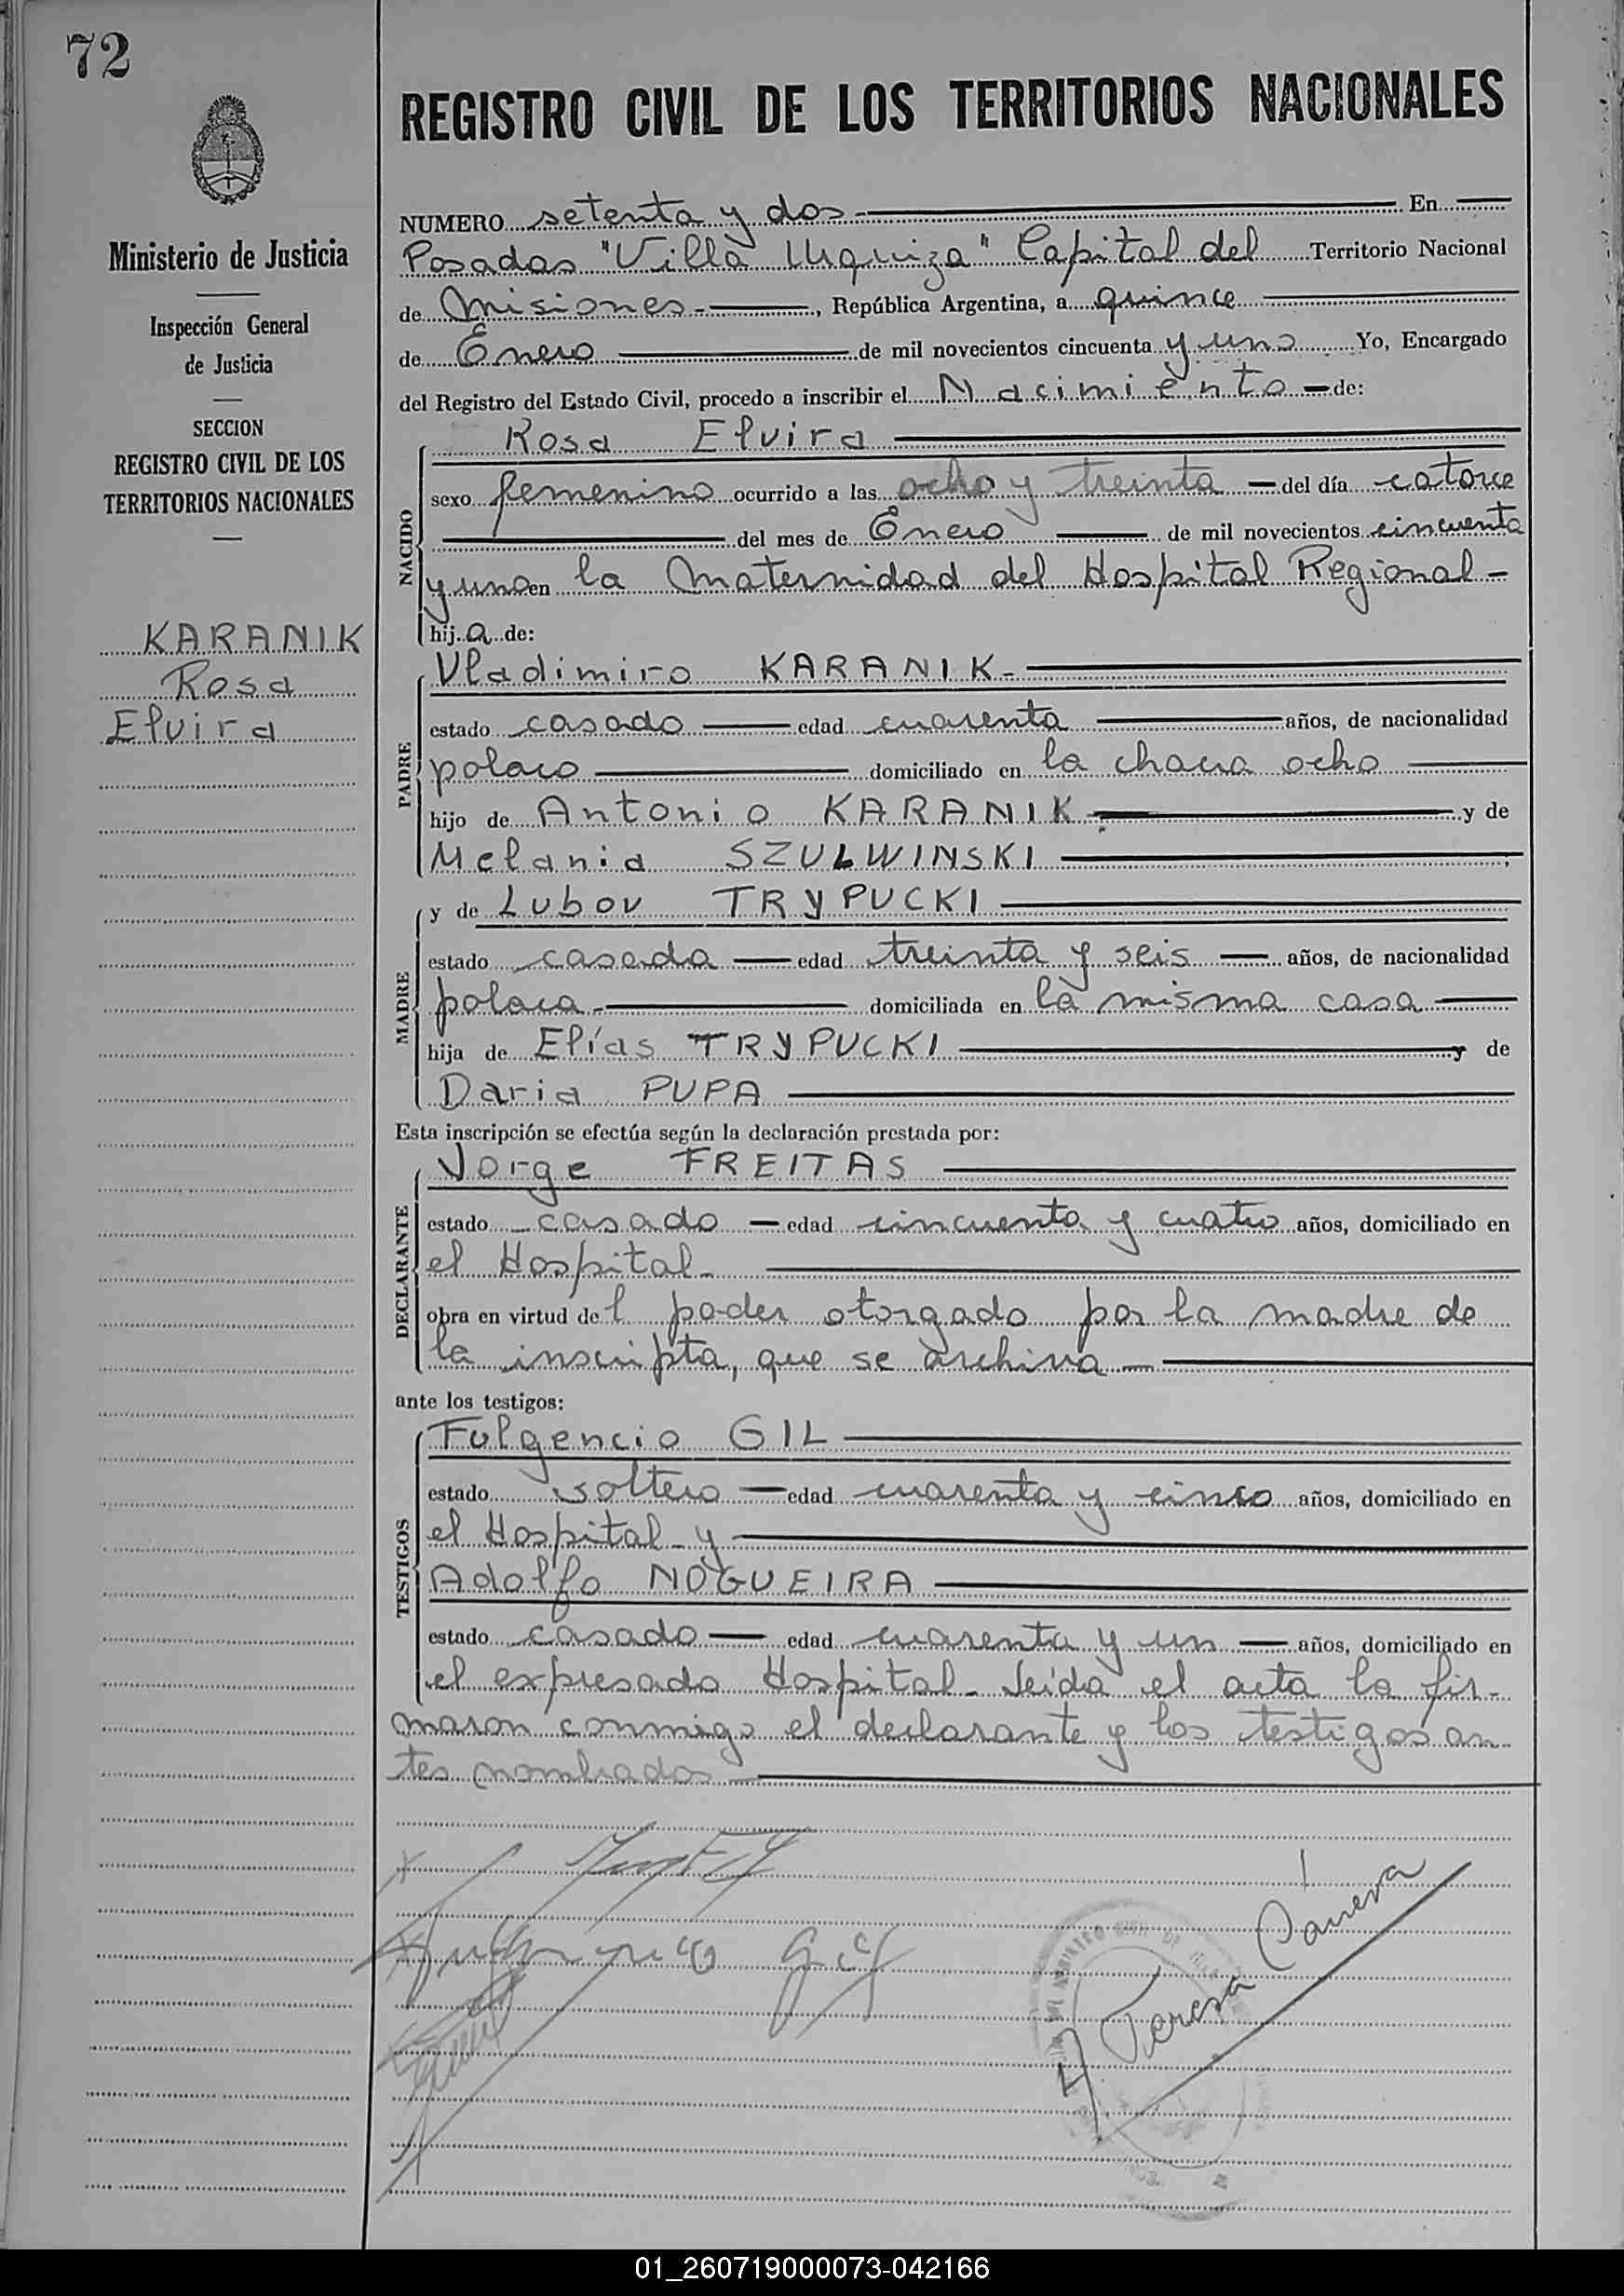 72
REGISTRO CIVIL DE LOS TERRITORIOS NACIONALES
Ministerio de Justicia
Inspección General
de Justicia
SECCION
REGISTRO CIVIL DE LOS
TERRITORIOS NACIONALES
KARANIK
Rosa
Elvira
NUMERO setenta y dos - En
Posadas "Villa Urquiza" Capital del Territorio Nacional
de Misiones - , República Argentina, a quince
de Enero de mil novecientos cincuenta y uno Yo, Encargado
del Registro del Estado Civil, procedo a inscribir el Nacimiento de:
NACIDO
Rosa Elvira
sexo femenino ocurrido a las ocho y treinta del día catorce
del mes de Enero de mil novecientos cincuenta
y uno en la Maternidad del Hospital Regional -
hij a de:
PADRE
Vladimiro KARANIK -
estado casado edad cuarenta años, de nacionalidad
polaco domiciliado en la chacra ocho
hijo de Antonio KARANIK y de
Melania SZULWINSKI
MADRE
y de Lubov TRYPUCKI
estado casada edad treinta y seis años, de nacionalidad
polaca - domiciliada en la misma casa
hija de Elías TRYPUCKI y de
Daria PUPA
Esta inscripción se efectúa según la declaración prestada por:
DECLARANTE
Jorge FREITAS
estado casado edad cincuenta y cuatro años, domiciliado en
el Hospital -
obra en virtud de l poder otorgado por la madre de
la inscripta, que se archiva
ante los testigos:
TESTIGOS
Fulgencio GIL
estado soltero edad cuarenta y cinco años, domiciliado en
el Hospital - y
Adolfo NOGUEIRA
estado casado edad cuarenta y un años, domiciliado en
el expresado Hospital - Leída el acta la fir-
maron conmigo el declarante y los testigos an-
tes nombrados
Fulgencio Gil
Teresa Cánera
01_260719000073-042166